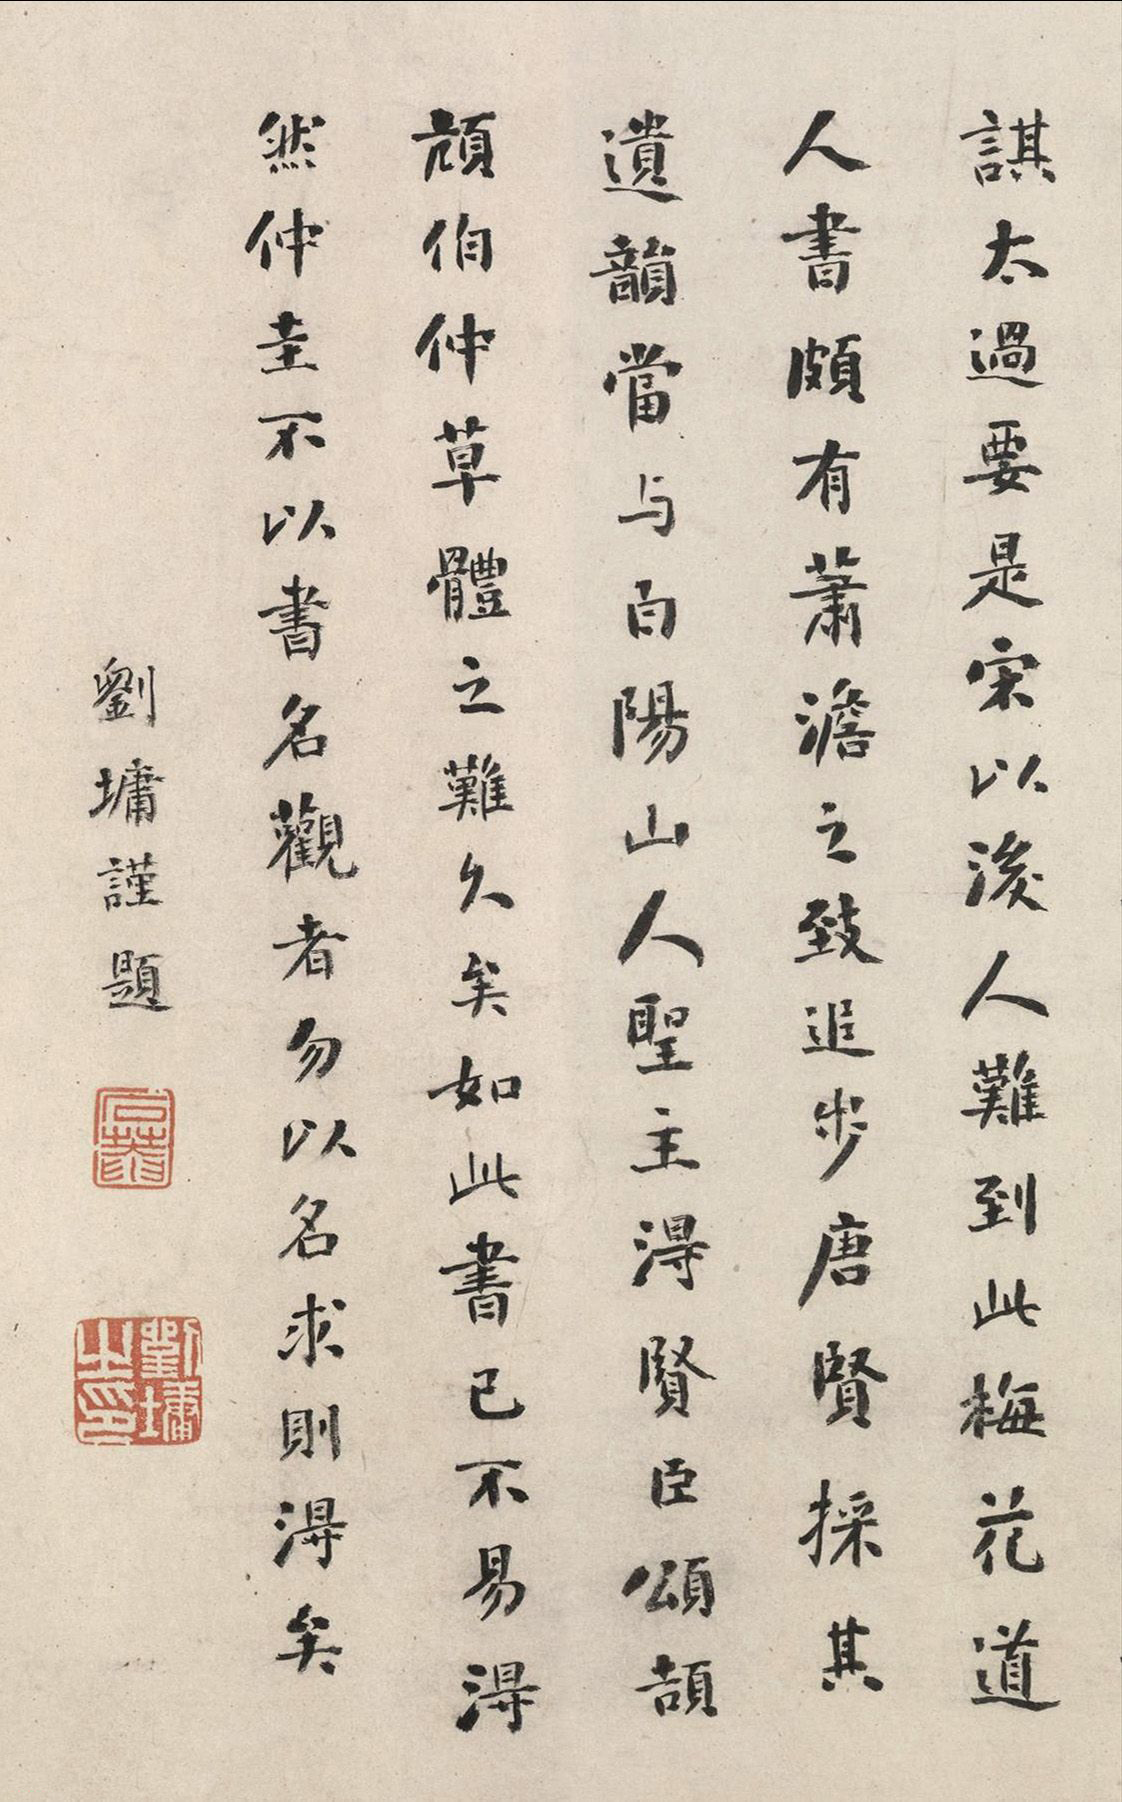 諆太過要是宋以後人難到此梅花道
人書頗有蕭澹之致追步唐賢採其
遺韻當与白陽山人聖主得賢臣頌頡
頏伯仲草體之難久矣如此書已不易得
然仲圭不以書名觀者勿以名求則得矣
劉墉謹題
石菴
劉墉之印